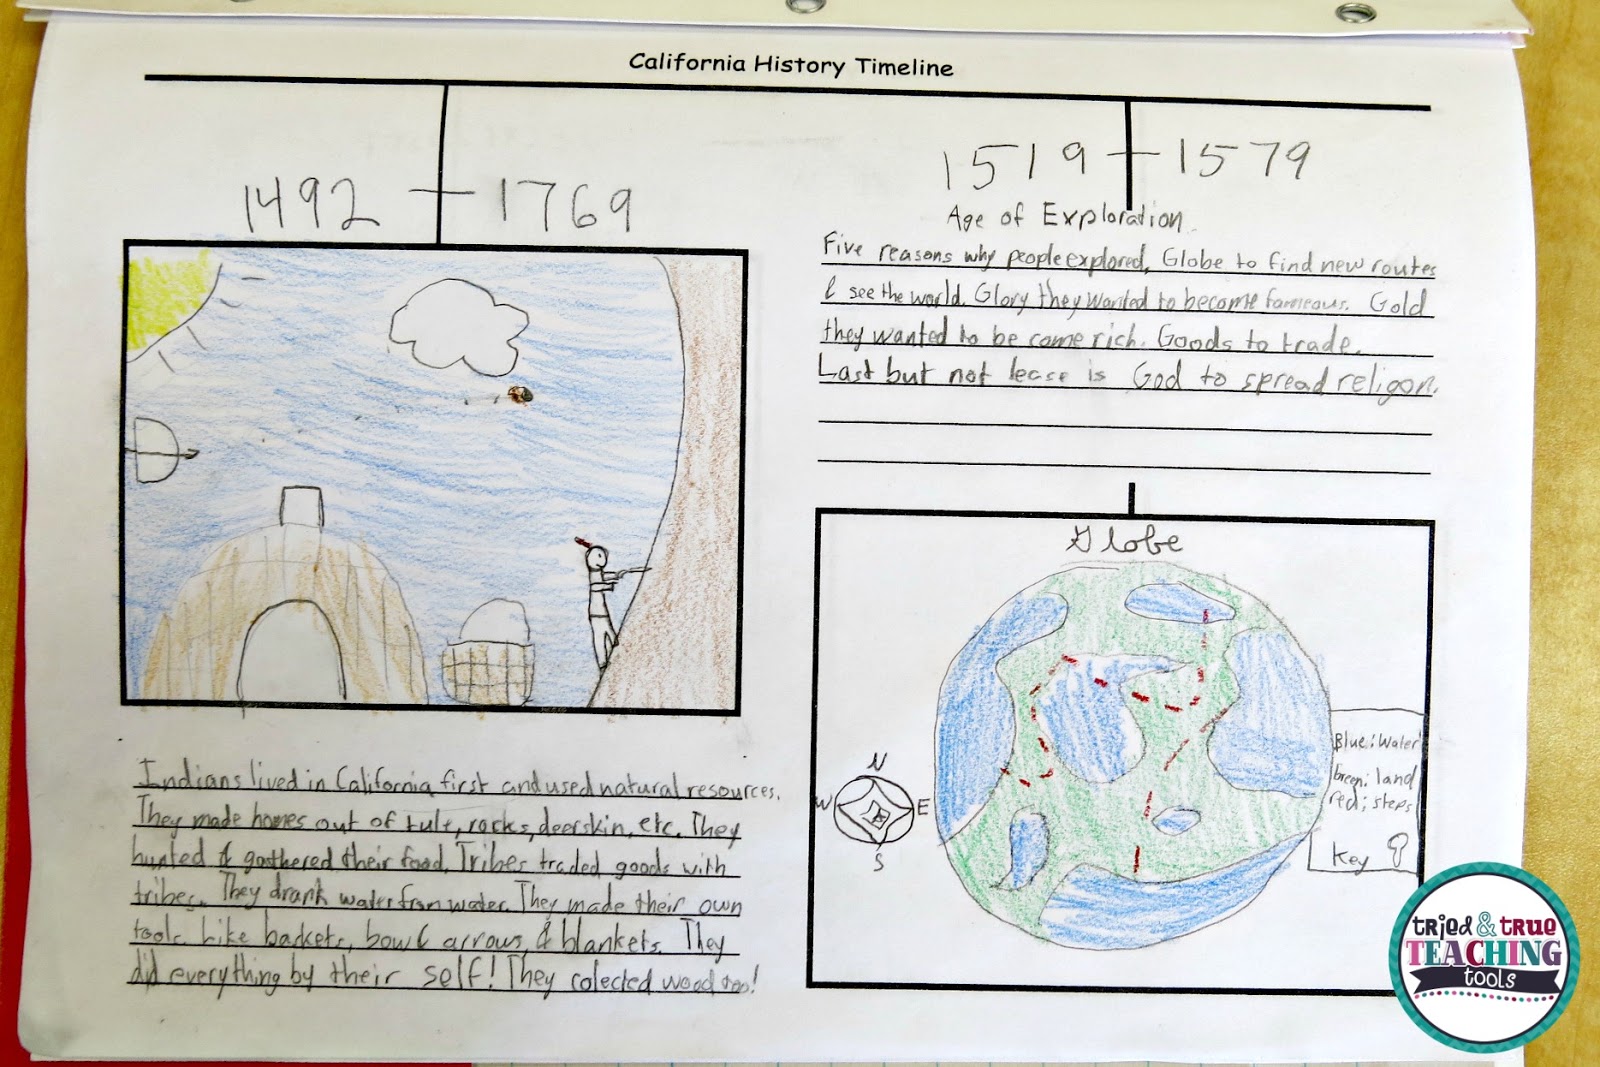 California History Timeline
1492 - 1769
Indians lived in California first and used natural resources.
They made homes out of tule, rocks, deerskin, etc. They
hunted & gathered their food. Tribes traded goods with
tribes. They drank water from water. They made their own
tools. Like backets, bow & arrows, & blankets. They
did everything by their self! They colected wood too!
1519 - 1579
Age of Exploration
Five reasons why people explored, Globe to find new routes
& see the world. Glory they wanted to become fameous. Gold
they wanted to be come rich. Goods to trade.
Last but not lease is God to spread religon.
Globe
N
W E
S
Blue: Water
Green: land
red: steps
Key
tried & true
TEACHING
tools